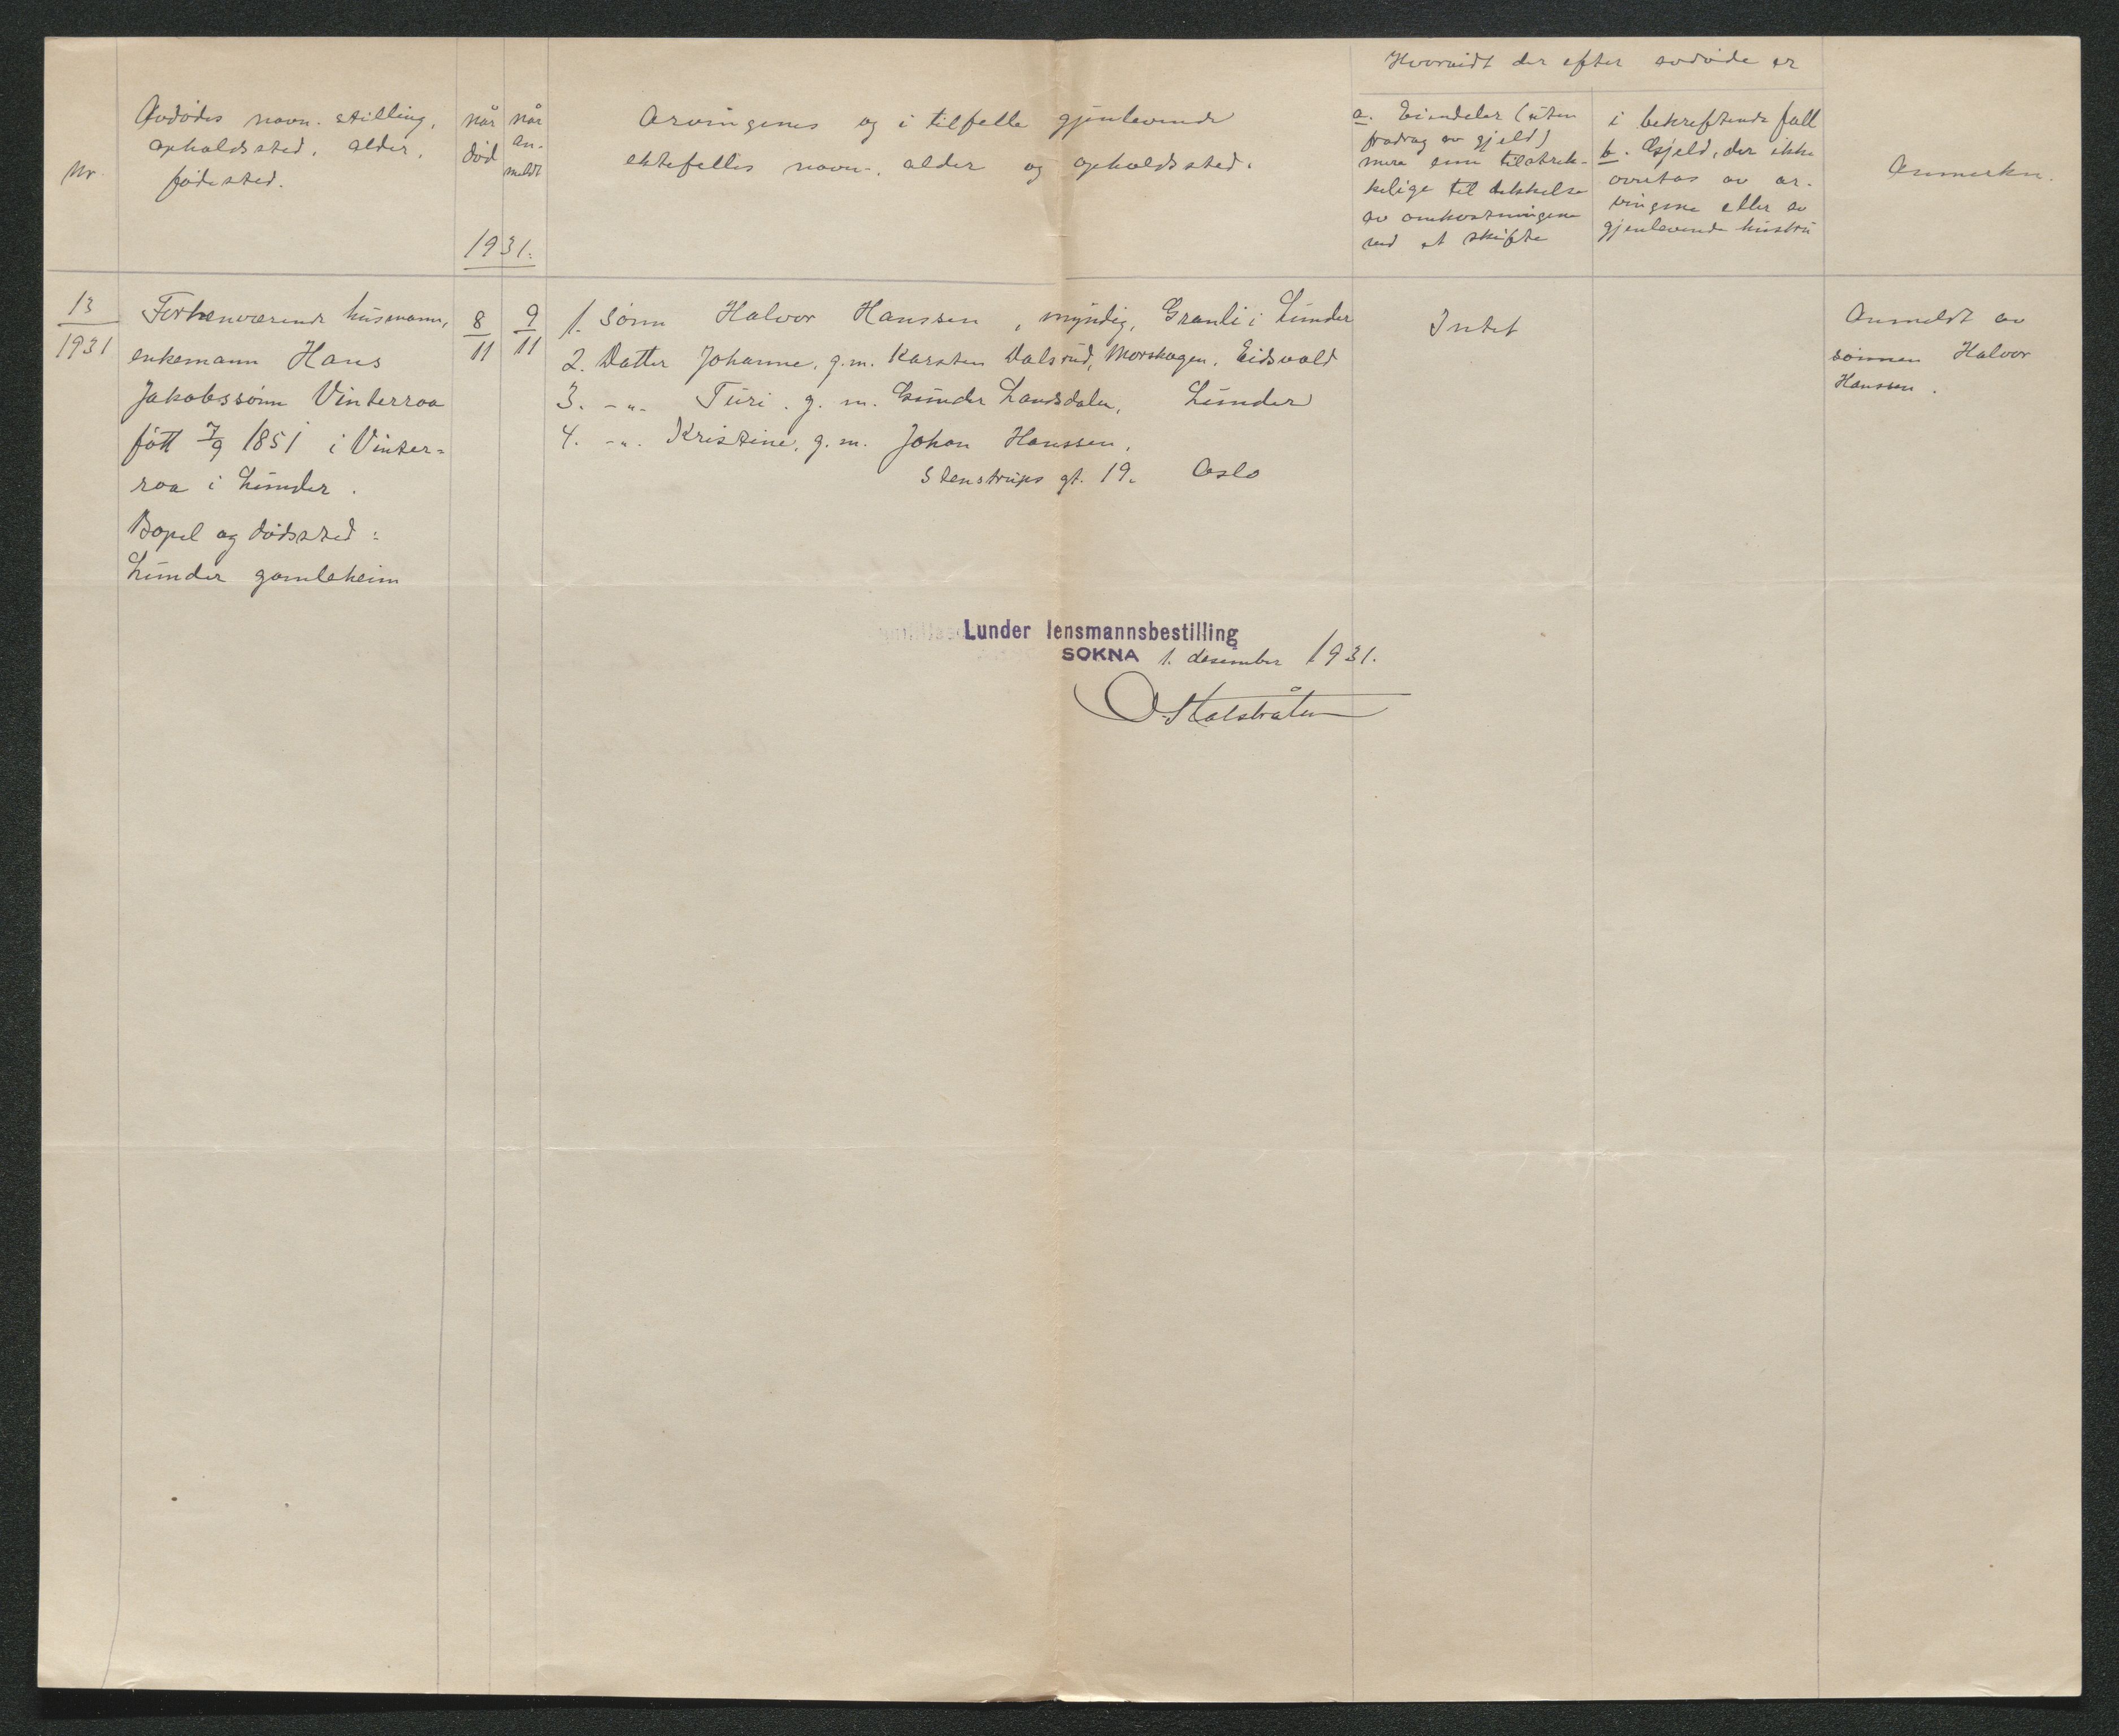 Hvorvidt der efter avdøde er
Nr.
Avdødes navn. stilling,
opholdssted, alder,
fødested.
når
død
når
an-
meldt
1931.
Arvingenes og i tilfelle gjenlevende
ektefelles navn-, alder og opholdssted.
a. Eiendeler (uten
fradrag av gjeld)
mere enn tilstrek-
kelige til dekkelse
av omkostningene
ved et skifte
i bekreftende fall
b. Gjeld, der ikke
overtas av ar-
vingene eller av
gjenlevende hustru
Anmerkn.
13
1931
Forhenværende husmann,
enkemann Hans
Jakobssønn Vinterroa
født 7/9 1851 i Vinter-
roa i Lunder.
Bopel og dødssted:
Lunder gamleheim
8
11
9
11
1. Sønn Halvor Hanssen, myndig, Granli i Lunder
2. Datter Johanne, g.m. Karsten Dalsrud, Morskogen, Eidsvold
3. -"- Turi. g. m. Gunder Landsdalen, Lunder
4. -"- Kristine, g. m. Johan Hanssen,
Stenstrups gt. 19. Oslo
Intet
Anmeldt av
sønnen Halvor
Hanssen.
Lunder lensmannsbestilling
SOKNA 1. desember 1931.